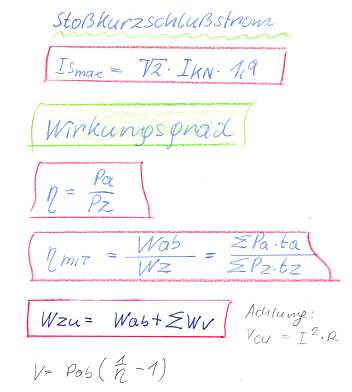 Stoßkurzschlußstrom
ISmax = √2 · IKN · 1,9
Wirkungsgrad
η = Pa / Pz
ηMIT = Wab / Wz = ΣPa·ta / ΣPz·tz
Wzu = Wab + ΣWv
Achtung:
Vcu = I²·R
V = Pab (1/η - 1)